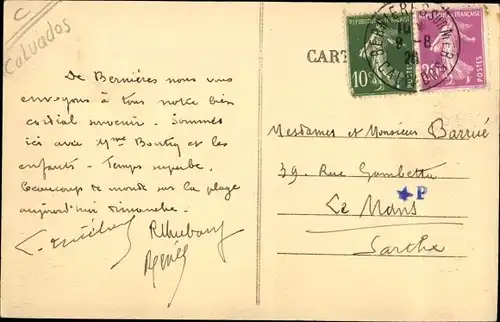 C
Calvados
CART
RÉPUBLIQUE FRANÇAISE
10c
POSTES
RÉPUBLIQUE FRANÇAISE
POSTES
BERNIERES S MER
8-8
26
CALVADOS
De Bernières nous vous
envoyons à tous notre bien
cordial souvenir. Sommes
ici avec Mme Boutry et les
enfants. Temps superbe.
Beaucoup de monde sur la plage
aujourd'hui dimanche.
Mesdames et Monsieur Barrié
39, Rue Gambetta
P
Le Mans
Sarthe